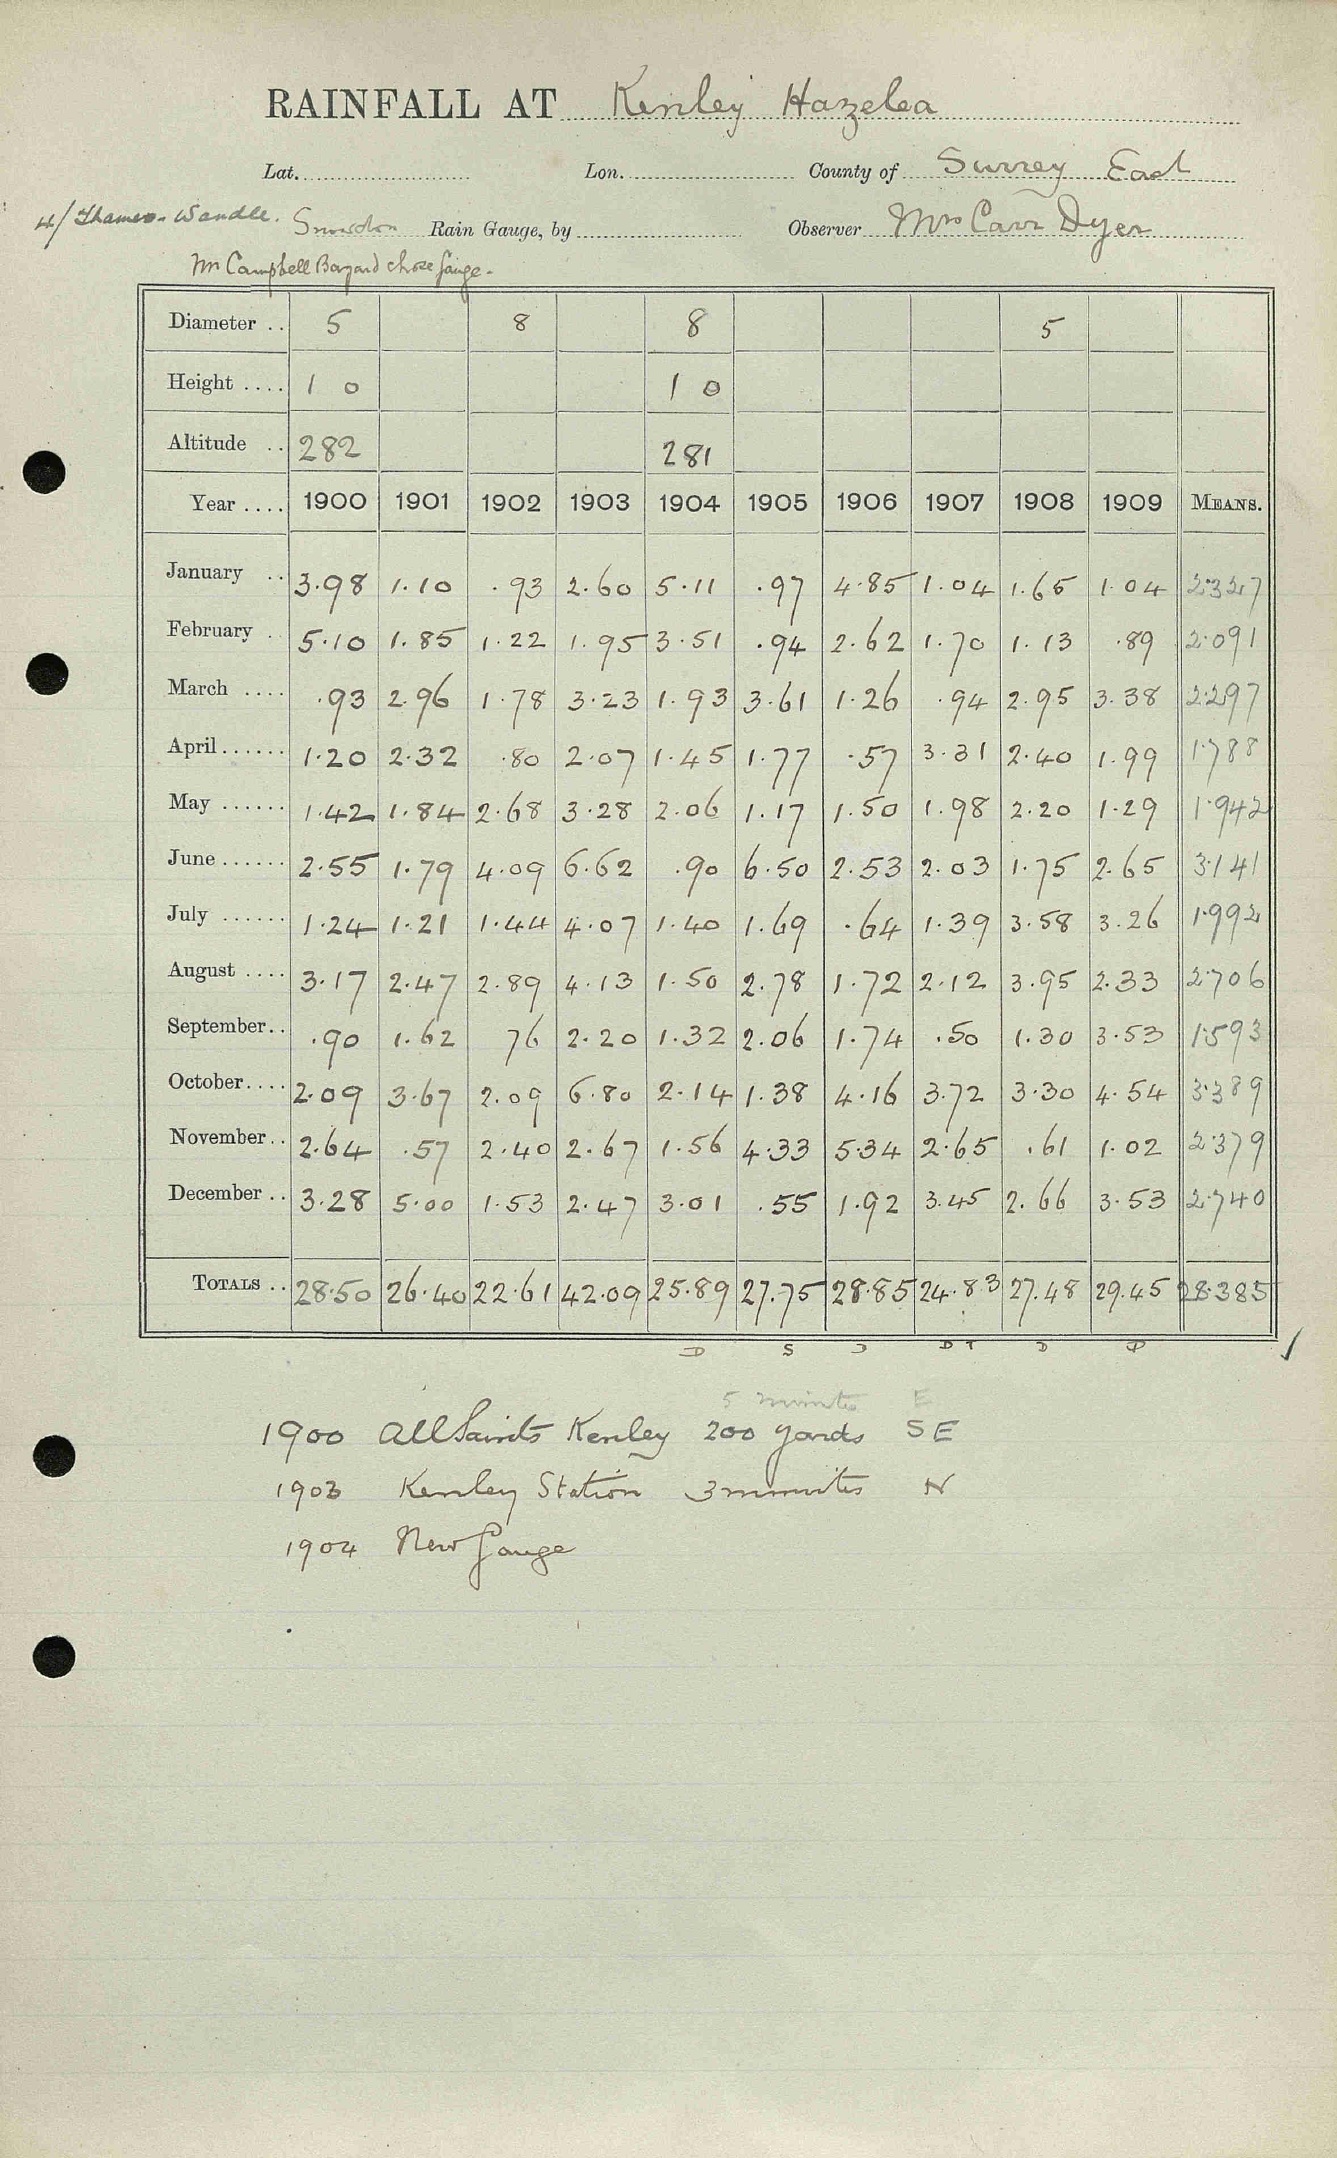 RAINFALL AT Kenley Hazelea
Lat. Lon. County of Surrey East
4/ Thames-Wandle. Snowdon Rain Gauge, by Observer Mrs Carr Dyer
Mr Campbell Bayard chose gauge.
Diameter .. 5 8 8 5
Height .... 1 0 1 0
Altitude .. 282 281
Year .... 1900 1901 1902 1903 1904 1905 1906 1907 1908 1909 MEANS.
January .. 3.98 1.10 .93 2.60 5.11 .97 4.85 1.04 1.65 1.04 2.327
February .. 5.10 1.85 1.22 1.95 3.51 .94 2.62 1.70 1.13 .89 2.091
March .... .93 2.96 1.78 3.23 1.93 3.61 1.26 .94 2.95 3.38 2.297
April...... 1.20 2.32 .80 2.07 1.45 1.77 .57 3.31 2.40 1.99 1.788
May ...... 1.42 1.84 2.68 3.28 2.06 1.17 1.50 1.98 2.20 1.29 1.942
June...... 2.55 1.79 4.09 6.62 .90 6.50 2.53 2.03 1.75 2.65 3.141
July ...... 1.24 1.21 1.44 4.07 1.40 1.69 .64 1.39 3.58 3.26 1.992
August .... 3.17 2.47 2.89 4.13 1.50 2.78 1.72 2.12 3.95 2.33 2.706
September.. .90 1.62 76 2.20 1.32 2.06 1.74 .50 1.30 3.53 1.593
October.... 2.09 3.67 2.09 6.80 2.14 1.38 4.16 3.72 3.30 4.54 3.389
November.. 2.64 .57 2.40 2.67 1.56 4.33 5.34 2.65 .61 1.02 2.379
December .. 3.28 5.00 1.53 2.47 3.01 .55 1.92 3.45 2.66 3.53 2.740
TOTALS .. 28.50 26.40 22.61 42.09 25.89 27.75 28.85 24.83 27.48 29.45 28.385
D S D D T D D
5 minutes E
1900 All Saints Kenley 200 yards SE
1903 Kenley Station 3 minutes N
1904 New Gauge